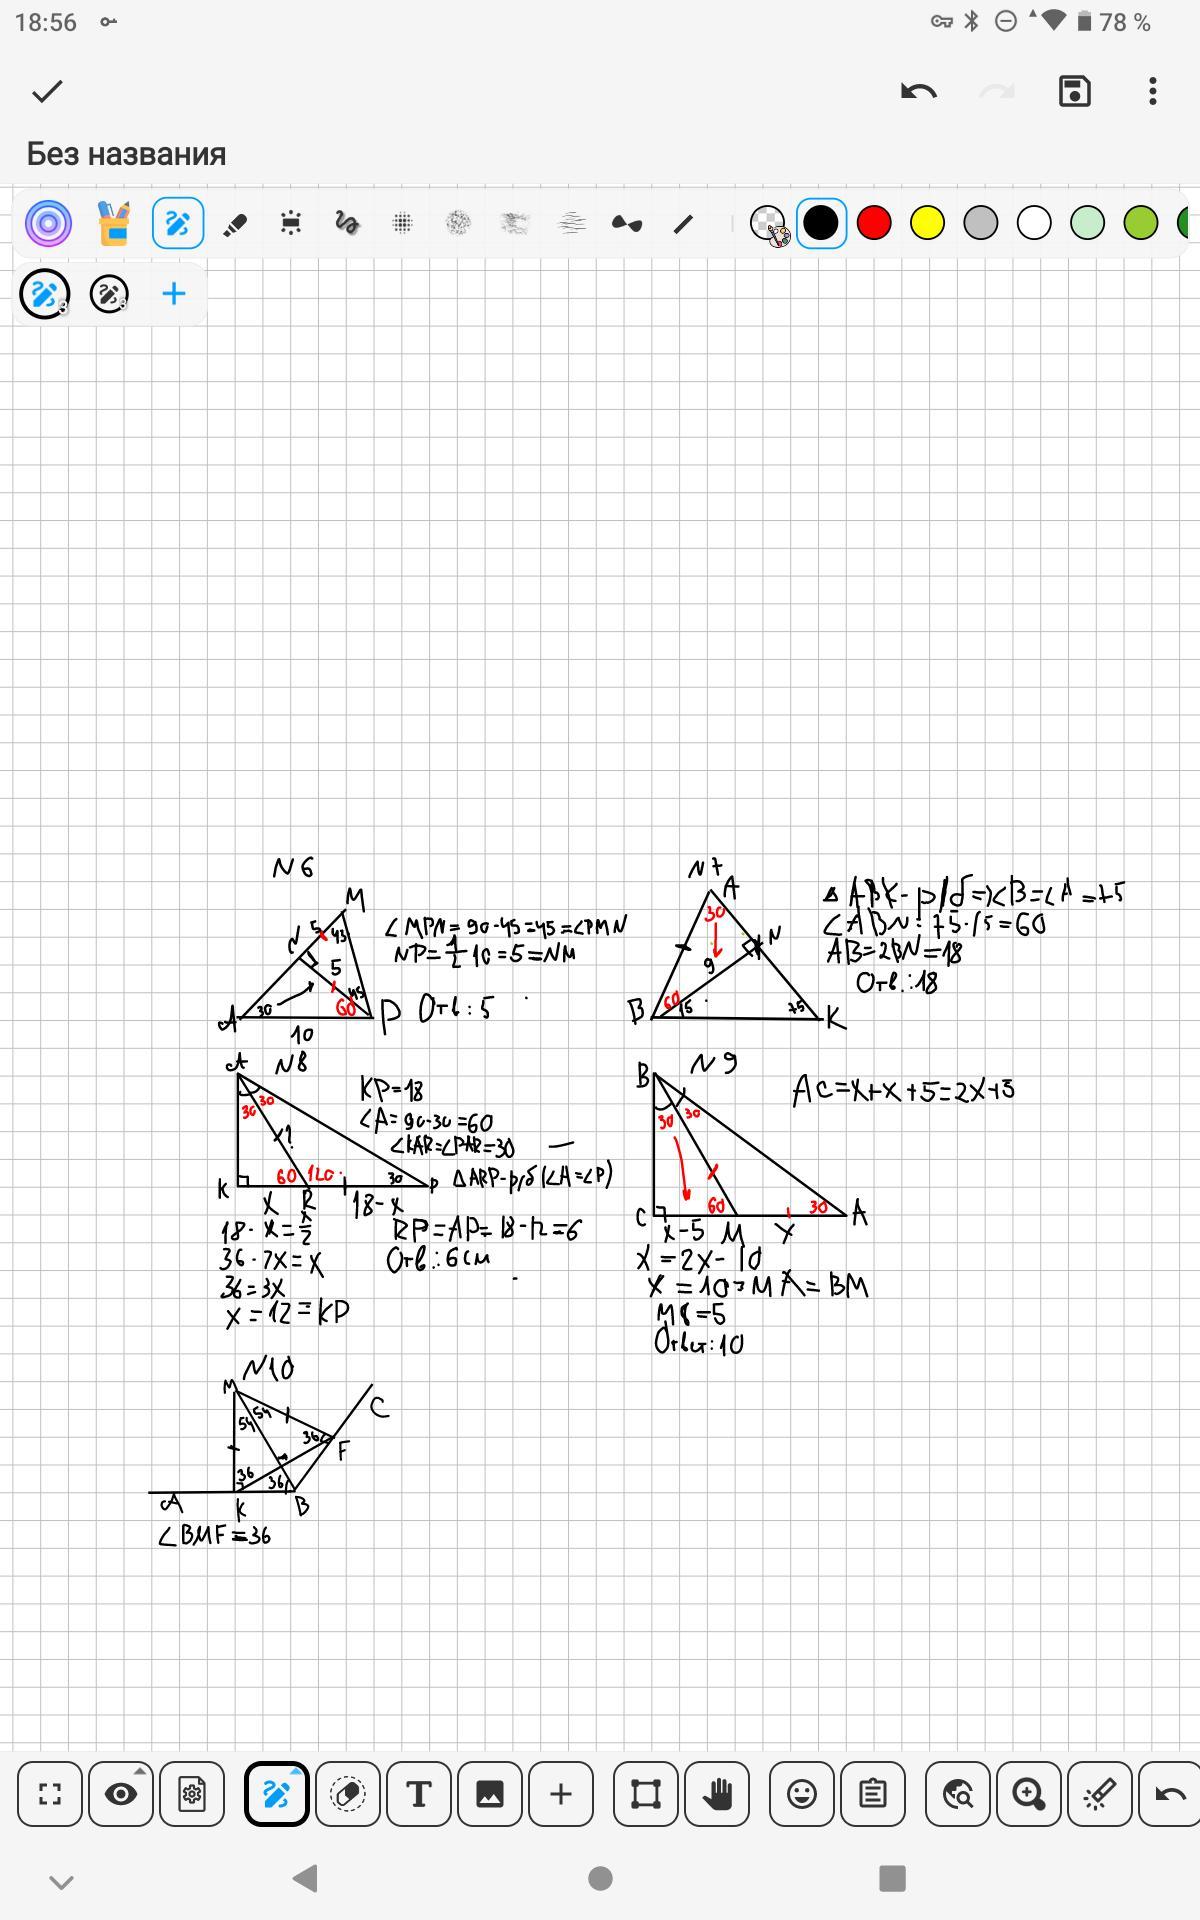 18:56
78 %
Без названия
N 6
M
N
5
45
5
45
30
60
A
P
10
∠MPN = 90-45 = 45 = ∠PMN
NP = 1/2 10 = 5 = NM
Отв: 5
N 7
A
30
N
9
60
15
75
B
K
△ ABK - р/б => ∠B = ∠A = 75
∠ABN = 75-15 = 60
AB = 2BN = 18
Отв.: 18
N 8
A
30
30
?
60
120
30
K
R
P
X
18-x
KP = 18
∠A = 90-30 = 60
∠KAR = ∠PAR = 30
△ARP - р/б (∠A = ∠P)
18 - x = x/2
36 - 2x = x
36 = 3x
x = 12 = KP
RP = AP = 18-12 = 6
Отв.: 6 см
N 9
B
30
30
60
30
C
M
A
x-5
x
AC = x + x + 5 = 2x + 5
x = 2x - 10
x = 10 = MA = BM
MC = 5
Ответ: 10
N 10
M
54
54
36
36
36
C
F
A
K
B
∠BMF = 36
T